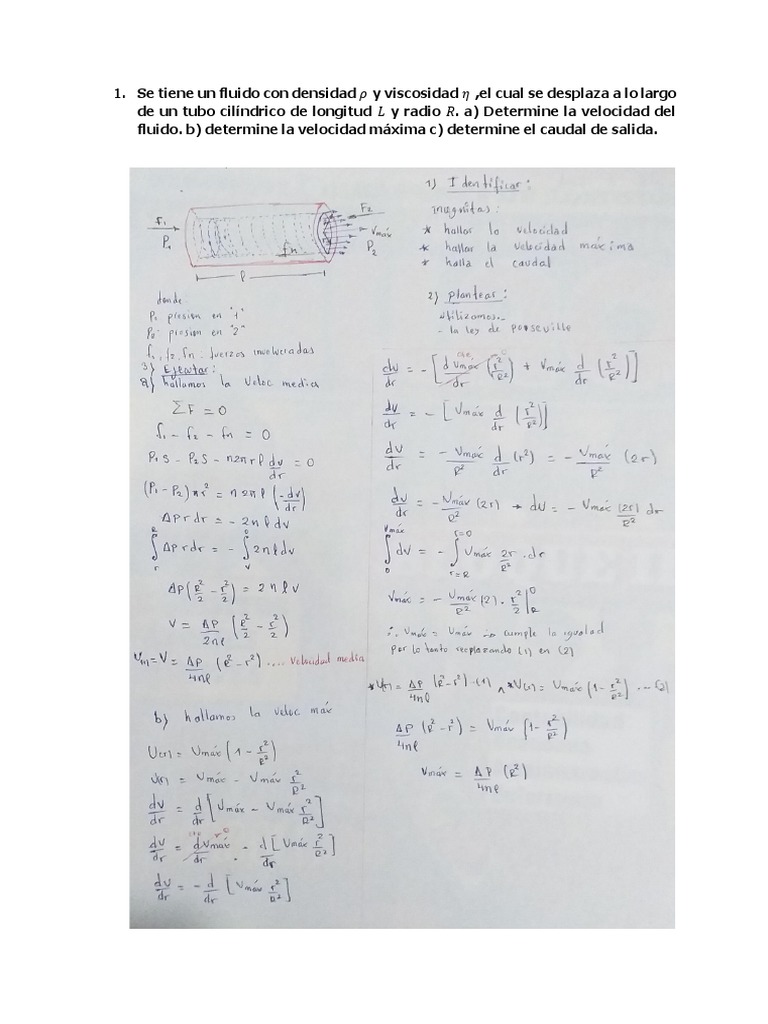 1. Se tiene un fluido con densidad ρ y viscosidad η ,el cual se desplaza a lo largo
de un tubo cilíndrico de longitud L y radio R. a) Determine la velocidad del
fluido. b) determine la velocidad máxima c) determine el caudal de salida.
f₁
P₁
F₂
Vmáx
P₂
fn
ℓ
donde:
P₁ presion en "1"
P₂ presion en "2"
f₁, f₂, fn: fuerzas involucradas
3) Ejecutar:
a) hallamos la Veloc media
ΣF = 0
f₁ - f₂ - fn = 0
P₁S - P₂S - η2πrℓ dv/dr = 0
(P₁ - P₂)πr² = η2πℓ (-dv/dr)
ΔP r dr = -2ηℓ dv
∫_r^R ΔP r dr = -∫_v^0 2ηℓ dv
ΔP(R²/2 - r²/2) = 2ηℓ v
V = ΔP/2ηℓ (R²/2 - r²/2)
V(r) = V = ΔP/4ηℓ (R² - r²) .... velocidad media
b) hallamos la veloc máx
V(r) = Vmáx (1 - r²/R²)
V(r) = Vmáx - Vmáx r²/R²
dv/dr = d/dr [Vmáx - Vmáx r²/R²]
dv/dr = dVmáx/dr - d/dr [Vmáx r²/R²]
dv/dr = - d/dr [Vmáx r²/R²]
1) Identificar:
incognitas:
* hallar la velocidad
* hallar la velocidad máxima
* halla el caudal
2) plantear:
utilizamos.-
- la ley de Poiseville
dv/dr = - [d Vmáx/dr (r²/R²) + Vmáx d/dr (r²/R²)]
dv/dr = - [Vmáx d/dr (r²/R²)]
dv/dr = - Vmáx/R² d/dr (r²) = - Vmáx/R² (2r)
dv/dr = - Vmáx/R² (2r) → dv = - Vmáx (2r)/R² dr
∫_0^Vmáx dv = - ∫_r=R^r=0 Vmáx 2r/R² · dr
Vmáx = - Vmáx/R² (2) · r²/2 |_R^0
∴ Vmáx = Vmáx → cumple la igualad
por lo tanto reeplazando (1) en (2)
* V(r) = ΔP/4ηℓ (R² - r²) -(1) ∧ * V(r) = Vmáx (1 - r²/R²) ... (2)
ΔP/4ηℓ (R² - r²) = Vmáx (1 - r²/R²)
Vmáx = ΔP/4ηℓ (R²)